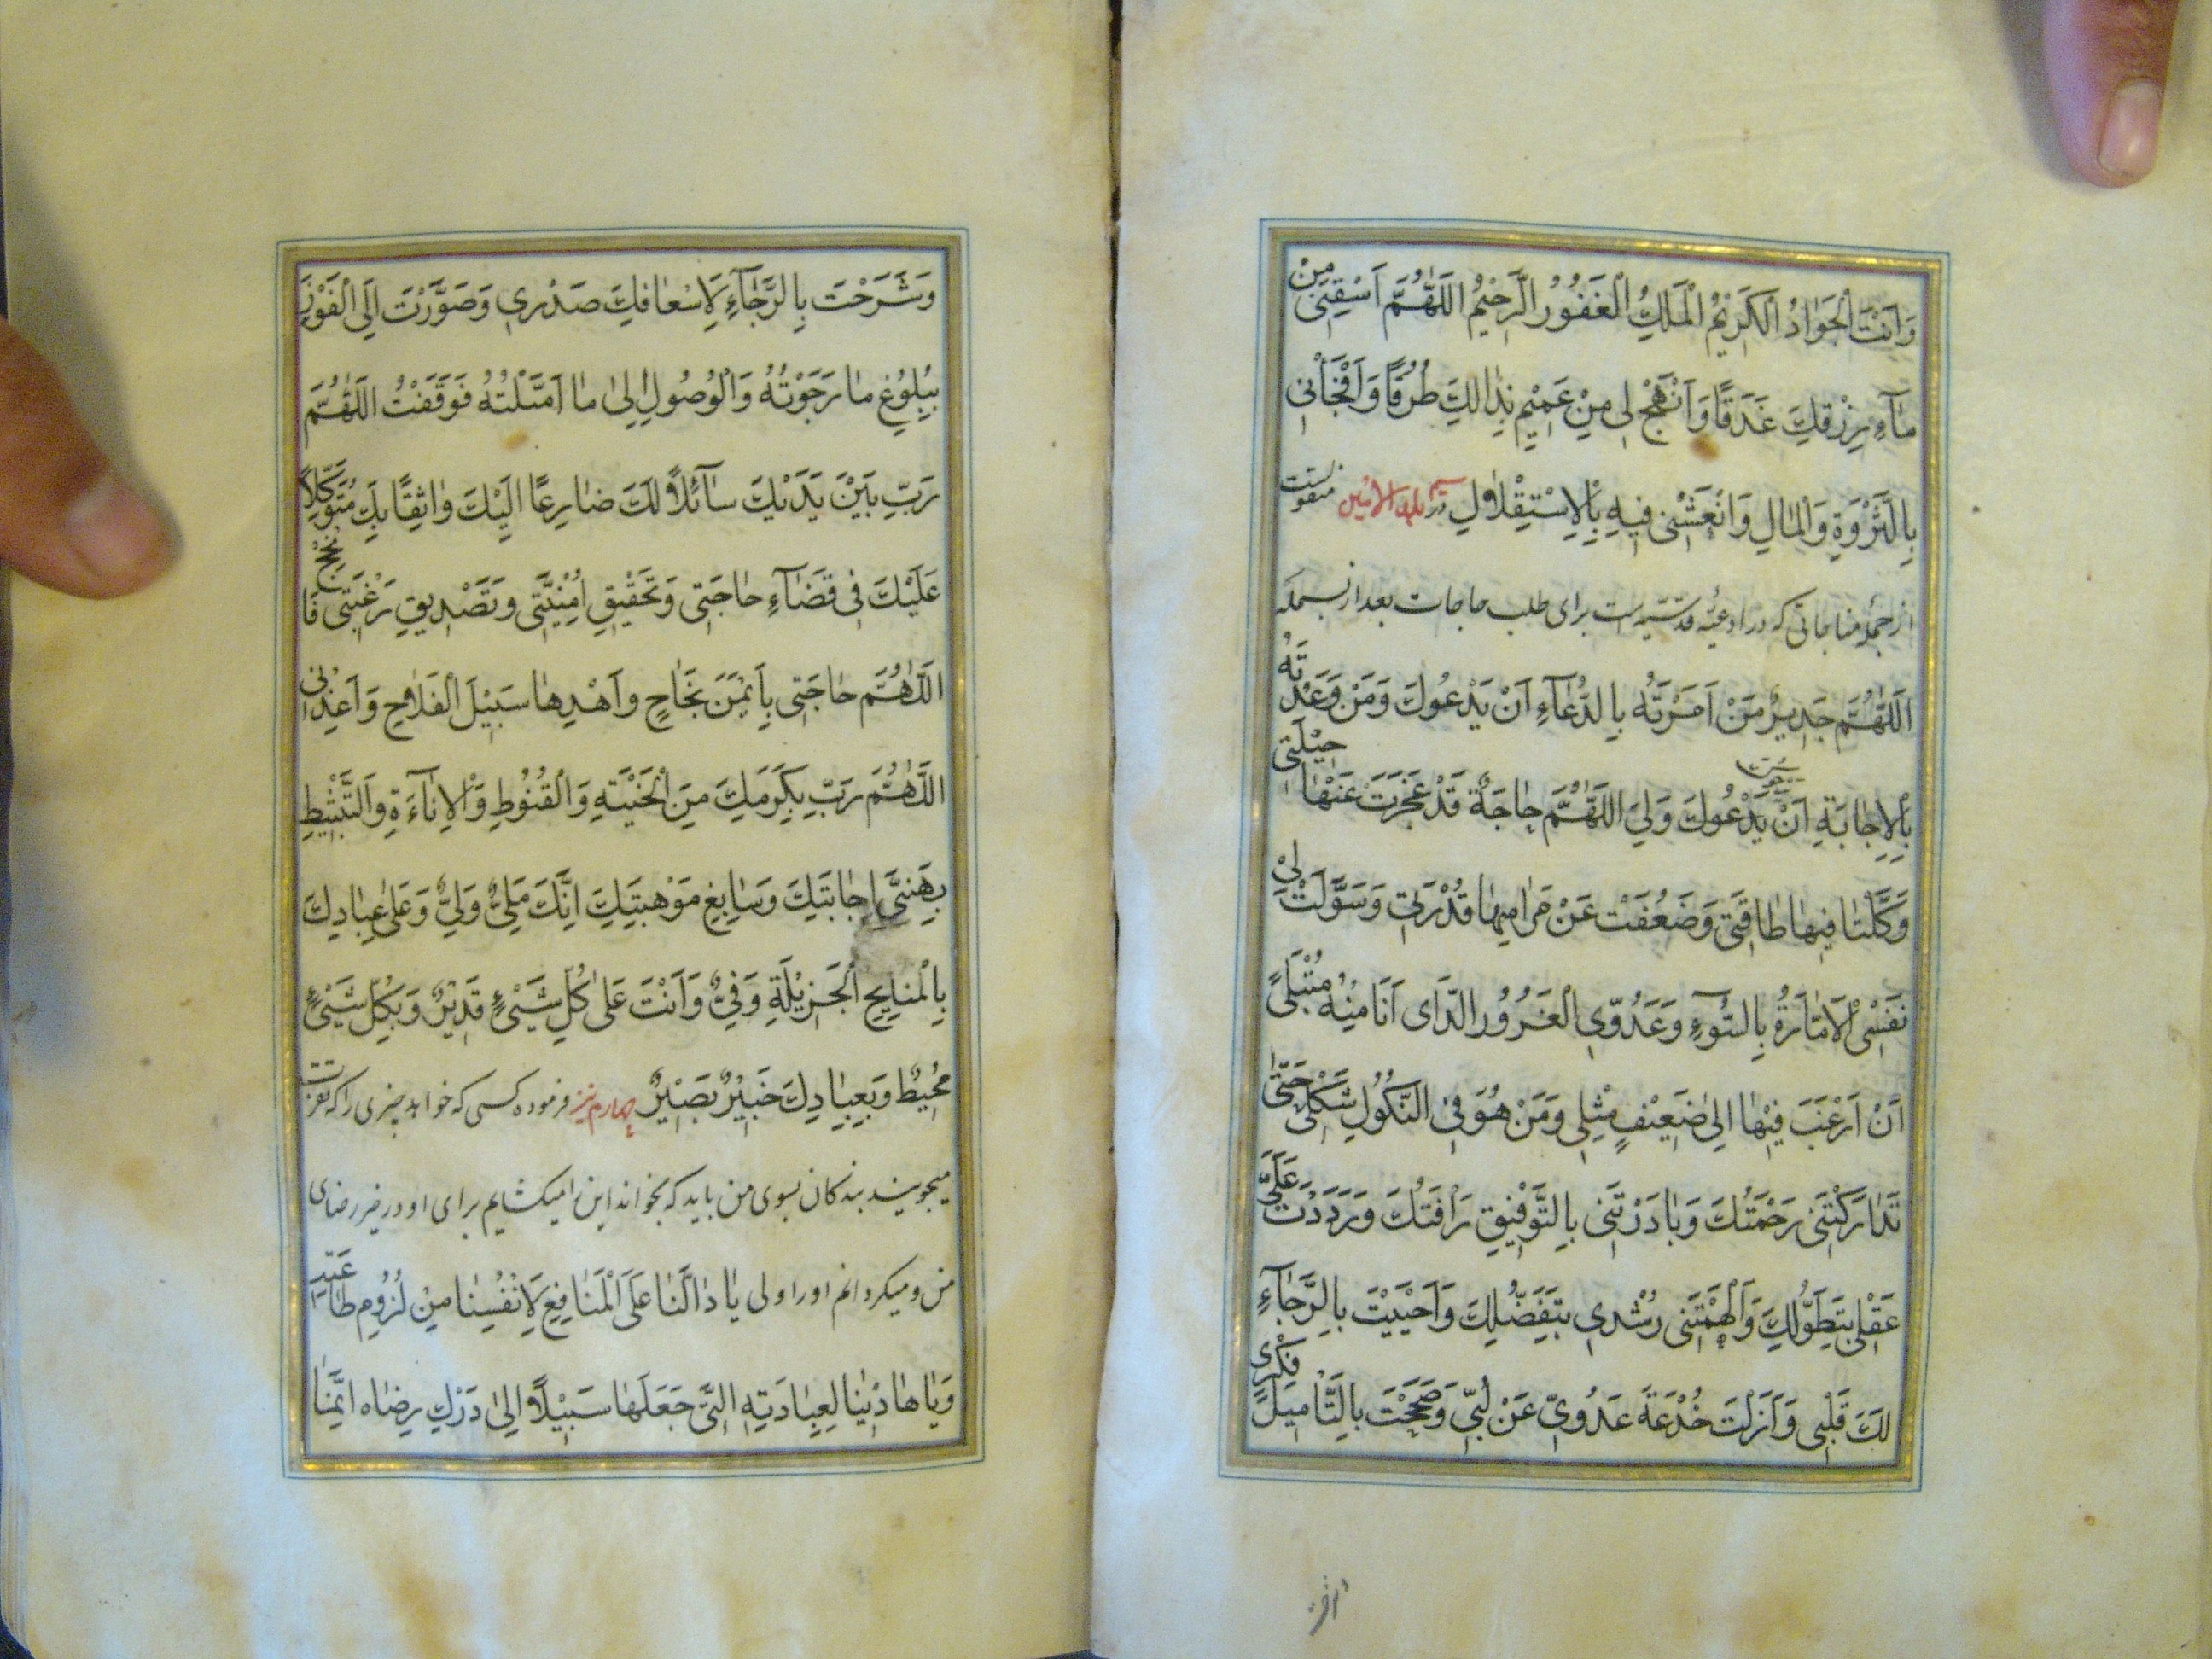 وَاَنْتَ الْجَوٰادُ الْكَرٖيْمُ الْمَلِكُ الْغَفُوُرُ الرَّحٖيْمُ اَللّٰهُمَّ اَسْقِنٖى مِنْ
مٰآءِ رِزْقِكَ غَدَقًا وَاَنْهَجْ لٖى مِنْ عَمٖيْمِ بِذٰالِكَ طُرُقًا وَاَفْجَأْنٖى
بِالثَّرْوَةِ وَالْمٰالِ وَاَنْعَشْنٖى فٖيهِ بِالْاِسْتِقْلٰالِ در بلد الامين منقولست
از جمله مناجاتى كه در ادعيه قدسيه است براى طلب حاجات بعد از بسمله
اَللّٰهُمَّ جَدٖيرٌ مَنْ اَمَرْتَهُ بِالدُّعٰآءِ اَنْ يَدْعُوكَ وَمَنْ وَعَدْتَهُ
بِالْاِجٰابَةِ اَنْ يَدْعُوكَ وَلِىَ اللّٰهُمَّ حٰاجَةٌ قَدْ عَجَزَتْ عَنْهٰا حٖيْلَتٖى
وَكَلَّتْ فٖيهٰا طٰاقَتٖى وَضَعُفَتْ عَنْ مَرٰامٖيهٰا قُدْرَتٖى وَسَوَّلَتْ لٖى
نَفْسٖى الْاَمّٰارَةُ بِالسُّوٓءِ وَعَدُوّٖى الْغَرُوُر الَّذٖاى اَنَا مِنْهُ مُبْتَلًى
اَنْ اَرْغَبَ فٖيْهٰا اِلىٰ ضَعٖيْفٍ مِثْلٖى وَمَنْ هُوَ فِى النُّكُولِ شَكْلٖى حَتّٰى
تَدٰارَكَتْنٖى رَحْمَتُكَ وَبٰادَرَتْنٖى بِالتَّوْفٖيقِ رَاْفَتُكَ وَرَدَدْتَ عَلَىَّ
عَقْلٖى بِتَطَوُّلِكَ وَاَلْهَمْتَنٖى رُشْدٖى بِتَفَضُّلِكَ وَاَحْيَيْتَ بِالرَّجٰآءِ
لَكَ قَلْبٖى وَاَزَلْتَ خُدْعَةَ عَدُوّٖى عَنْ لُبّٖى وَصَحَّحْتَ بِالتَّاْمٖيلِ فِكْرٖى
وَشَرَحْتَ بِالرَّجٰآءِ لِاِسْعٰافِكَ صَدْرٖى وَصَوَّرْتَ اِلَىَّ الْفَوْزَ
بِبُلُوُغِ مٰا رَجَوْتُهُ وَالْوُصُولِ اِلىٰ مٰا اَمَّلْتُهُ فَوَقَفْتُ اللّٰهُمَّ
رَبِّ بَيْنَ يَدَيْكَ سٰآئِلًا لَكَ ضٰارِعًا اِلَيْكَ وٰاثِقًا بِكَ مُتَوَكِّلًا
عَلَيْكَ فٖى قَضٰآءِ حٰاجَتٖى وَتَحْقٖيْقِ اُمْنِيَّتٖى وَتَصْدٖيقِ رَغْبَتٖى فَانْجِحْ
اللّٰهُمَّ حٰاجَتٖى بِاَيْمَنِ نَجٰاحٍ وَاَهْدِهٰا سَبٖيْلَ الْفَلٰاحِ وَاَعِذْنٖى
اللّٰهُمَّ رَبِّ بِكَرَمِكَ مِنَ الْخَيْبَةِ وَالْقُنُوُطِ وَالْاِنٰاءَةِ وَالتَّثْبٖيطِ
بِهَنٖىءِ اِجٰابَتِكَ وَسٰابِغِ مَوْهِبَتِكَ اِنَّكَ مَلِىٌّ وَلِىٌّ وَعَلىٰ عِبٰادِكَ
بِالْمَنٰايِحِ الْجَزٖيْلَةِ وَفِىٌّ وَاَنْتَ عَلىٰ كُلِّ شَيْىءٍ قَدٖيْرٌ وَبِكُلِّ شَيْىءٍ
مُحٖيطٌ وَبِعِبٰادِكَ خَبٖيْرٌ بَصٖيْرٌ چهارم نيز فرموده كسى كه خواهد چيزى را كه تقرب
ميجويند بندكان بسوى من بايد كه بخواند اين را ميكشايم براى او در خير رضاى
من و ميكردانم اورا ولى يٰا دٰالَّنٰا عَلَى الْمَنٰافِعِ لِاَنْفُسِنٰا مِنْ لُزُوُمِ طٰاعَتِهِ
وَيٰا هٰادِيْنٰا لِعِبٰادَتِهِ الَّتٖى جَعَلَهٰا سَبٖيْلًا اِلىٰ دَرْكِ رِضٰاه اِنَّمٰا